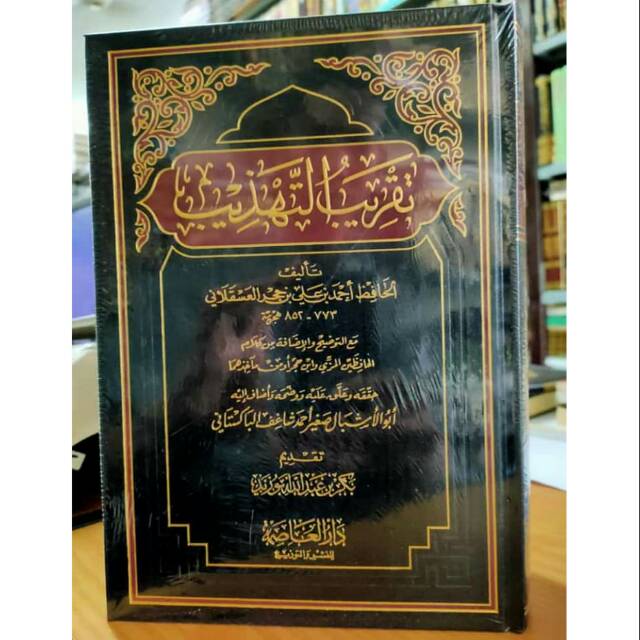 تقريب التهذيب
تأليف
الحافظ أحمد بن علي بن حجر العسقلاني
٧٧٣ - ٨٥٢ هجرية
مع التوضيح والإضافة من كلام
الحافظين المزي وابن حجر أو من مآخذهما
حققه وعلق عليه ووضحه وأضاف إليه
أبو الأشبال صغير أحمد شاغف الباكستاني
تقديم
بكر بن عبد الله أبو زيد
دار العاصمة
للنشر والتوزيع